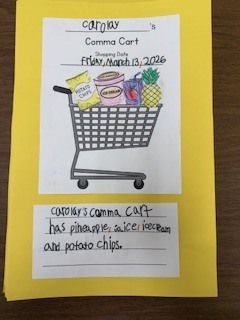 carolay 's
Comma Cart
Shopping Date
friday, March 13, 2026
POTATO
CHIPS
ICE CREAM
carolay's comma cart
has pineapple, juice, icecream
and potato chips.